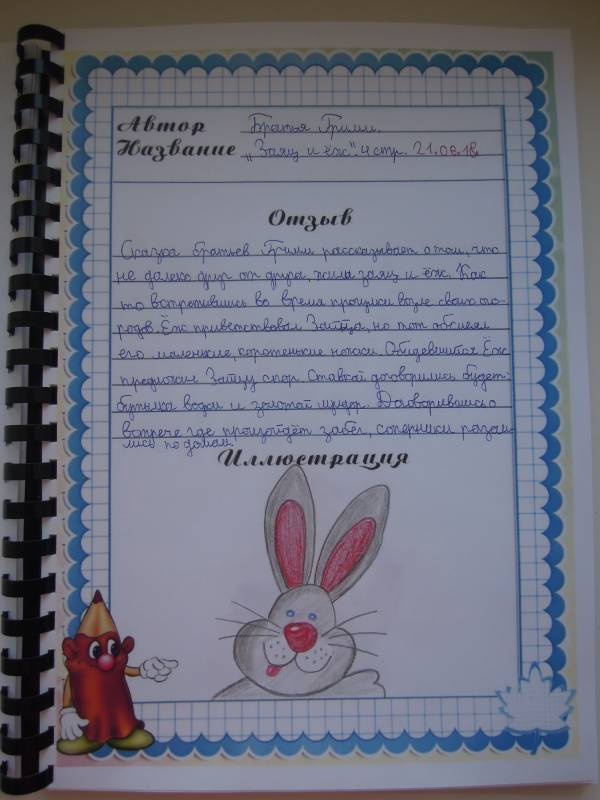 Автор Братья Гримм.
Название „Заяц и ёж". 4 стр. 21.08.18.
Отзыв
Сказка братьев Гримм рассказывает о том, что
не далеко друг от друга, жили заяц и ёж. Как
то встретившись во время прогулки возле своих ого-
родов. Ёж приветствовал Зайца, но тот обсмеял
его маленькие, коротенькие ножки. Обидевшийся Ёж
предложил Зайцу спор. Ставкой договорились будет:
бутылка водки и золотой луидор. Договорившись о
встрече где произойдёт забег, соперники разош-
лись по домам.
Иллюстрация